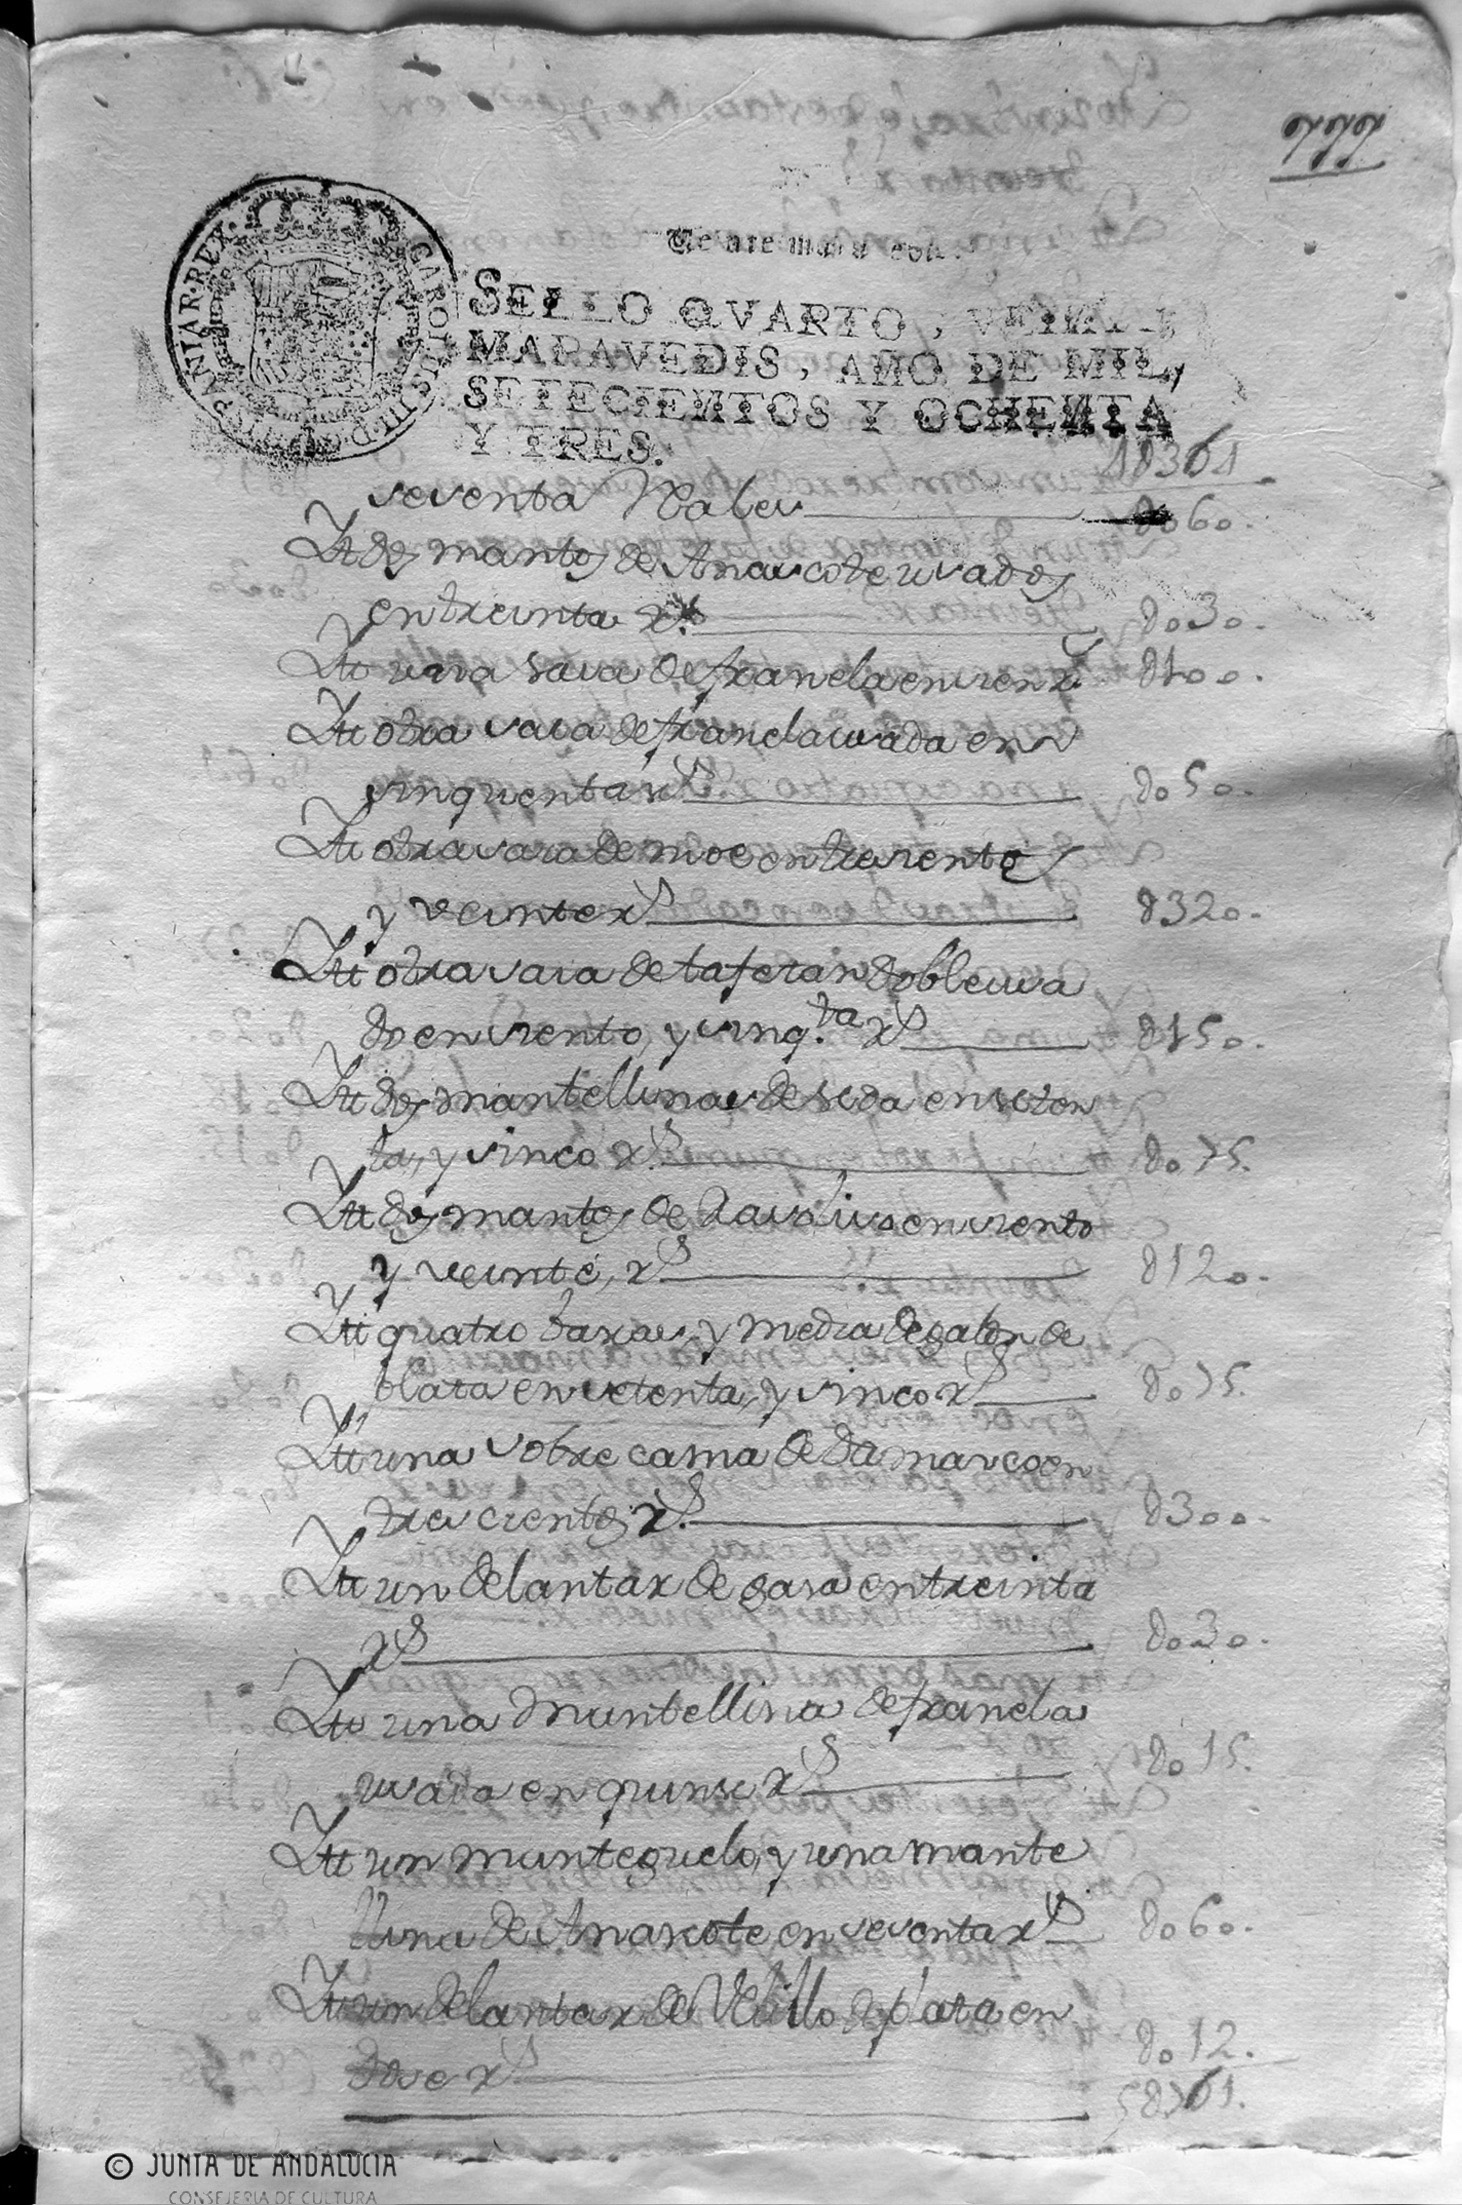 Veinte maravedis.
SELLO QVARTO, VEINTE
MARAVEDIS, AÑO DE MIL
SETECIENTOS Y OCHENTA
Y TRES.
HISPANIAR. REX. CAROLUS III D. G.
48361
sesenta Reales 8060.
Ytt dos mantos de Anascote usados
en treinta rs. 8030.
Ytt una saia de franela en cien rs 8100.
Ytt otra saia de franela usada en
cinquenta rs 8050.
Ytt otra saia de moe en trescientos
y veinte rs 8320.
Ytt otra saia de tafetan doble usa
do en ciento, y cinq.ta rs 8150.
Ytt dos mantellinas de seda en seten
ta, y cinco rs. 8075.
Ytt dos mantos de en ciento
y veinte, rs. 8120.
Ytt quatro baras, y media de galon de
plata en setenta, y cinco rs 8075.
Ytt una sobre cama de Damasco en
tres cientos rs. 8300.
Ytt un delantar de gasa en treinta
rs 8030.
Ytt una mantellina de franela
usada en quinse rs 8015.
Ytt un manteguelo, y una mante
llina de Anascote en sesenta rs 8060.
Ytt un delantar de Velillo de plata en
dose rs 8012.
58761.
© JUNTA DE ANDALUCIA
CONSEJERIA DE CULTURA